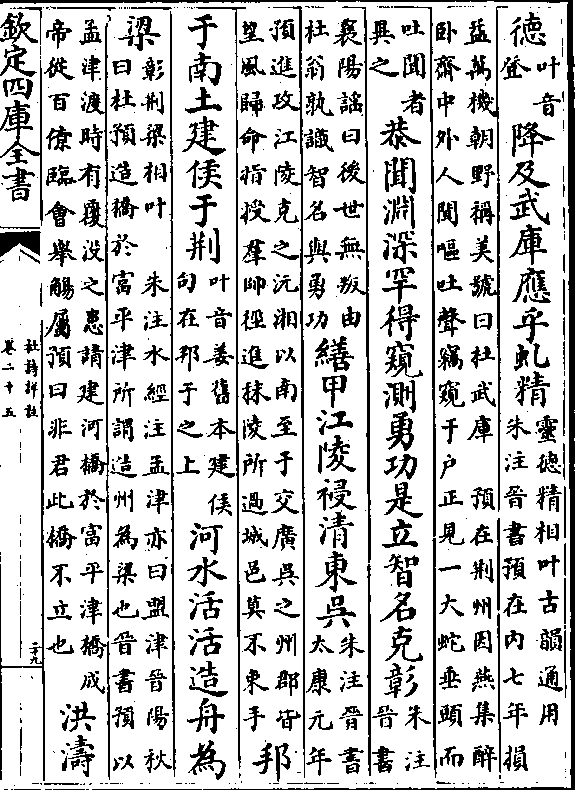 德叶音
登
降及武庫應乎虬精
靈德精相叶古韻通用
朱注晉書預在内七年損
益萬機朝野稱美號曰杜武庫　預在荆州因燕集醉
卧齋中外人聞嘔吐聲竊窺于户正見一大蛇垂頭而
吐聞者
異之
恭聞淵深罕得窺測勇功是立智名克彰
朱注
晉書
襄陽謡曰後世無叛由
杜翁孰識智名與勇功
繕甲江陵祲清東吳
朱注晉書
太康元年
預進攻江陵克之沅湘以南至于交廣吳之州郡皆
望風歸命指授羣帥徑進秣陵所過城邑莫不束手
邦
于南土建侯于荆
叶音姜舊本建侯
句在邦于之上
河水活活造舟為
梁
彰荆梁相叶　朱注水經注孟津亦曰盟津晉陽秋
曰杜預造橋於富平津所謂造州為梁也晉書預以
孟津渡時有覆没之患請建河橋於富平津橋成
帝從百僚臨會舉觴屬預曰非君此橋不立也
洪濤
欽定四庫全書
杜詩詳註
卷二十五
二十九